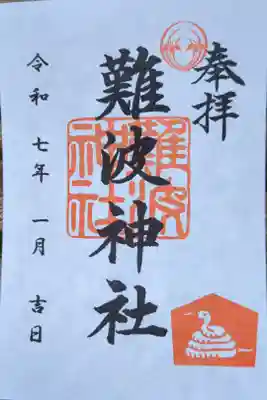 奉拝
難波神社
難波
神社
令和七年 一月 吉日